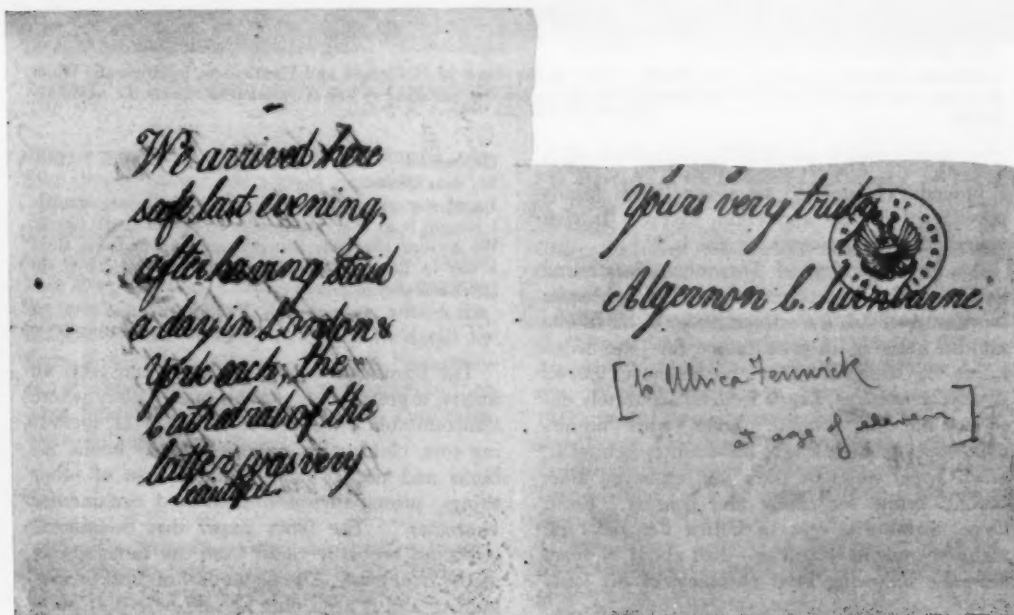 We arrived here
safe last evening,
after having staid
a day in London &
York each, the
Cathedral of the
latter was very
beautiful.
Yours very truly,
Algernon C. Swinburne.
[to Ulrica Fenwick
at age of eleven]
OF CONGRESS